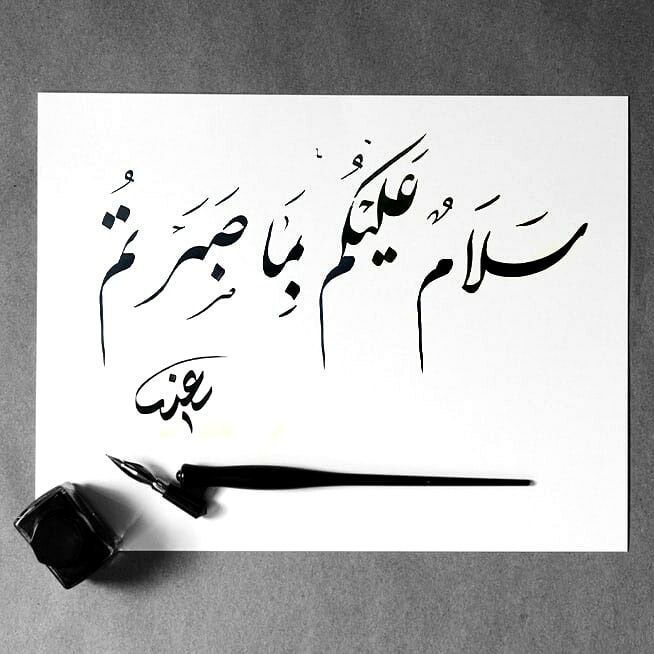 سَلَامٌ عَلَيْكُمُ بِمَا صَبَرْتُمُ